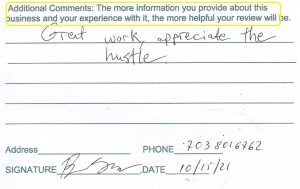 Additional Comments: The more information you provide about this
business and your experience with it, the more helpful your review will be.
Great work, appreciate the
hustle
Address PHONE 7038016762
SIGNATURE DATE 10/15/21